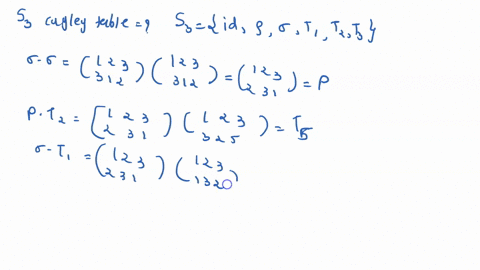 S₃ cayley table = ? S₃ = { id, ρ, σ, T₁, T₂, T₃ }
σ·σ = ( 1 2 3 / 3 1 2 ) ( 1 2 3 / 3 1 2 ) = ( 1 2 3 / 2 3 1 ) = ρ
ρ·T₂ = [ 1 2 3 / 2 3 1 ) ( 1 2 3 / 3 2 5 ) = T
σ·T₁ = ( 1 2 3 / 2 3 1 ) ( 1 2 3 / 1 3 2 )